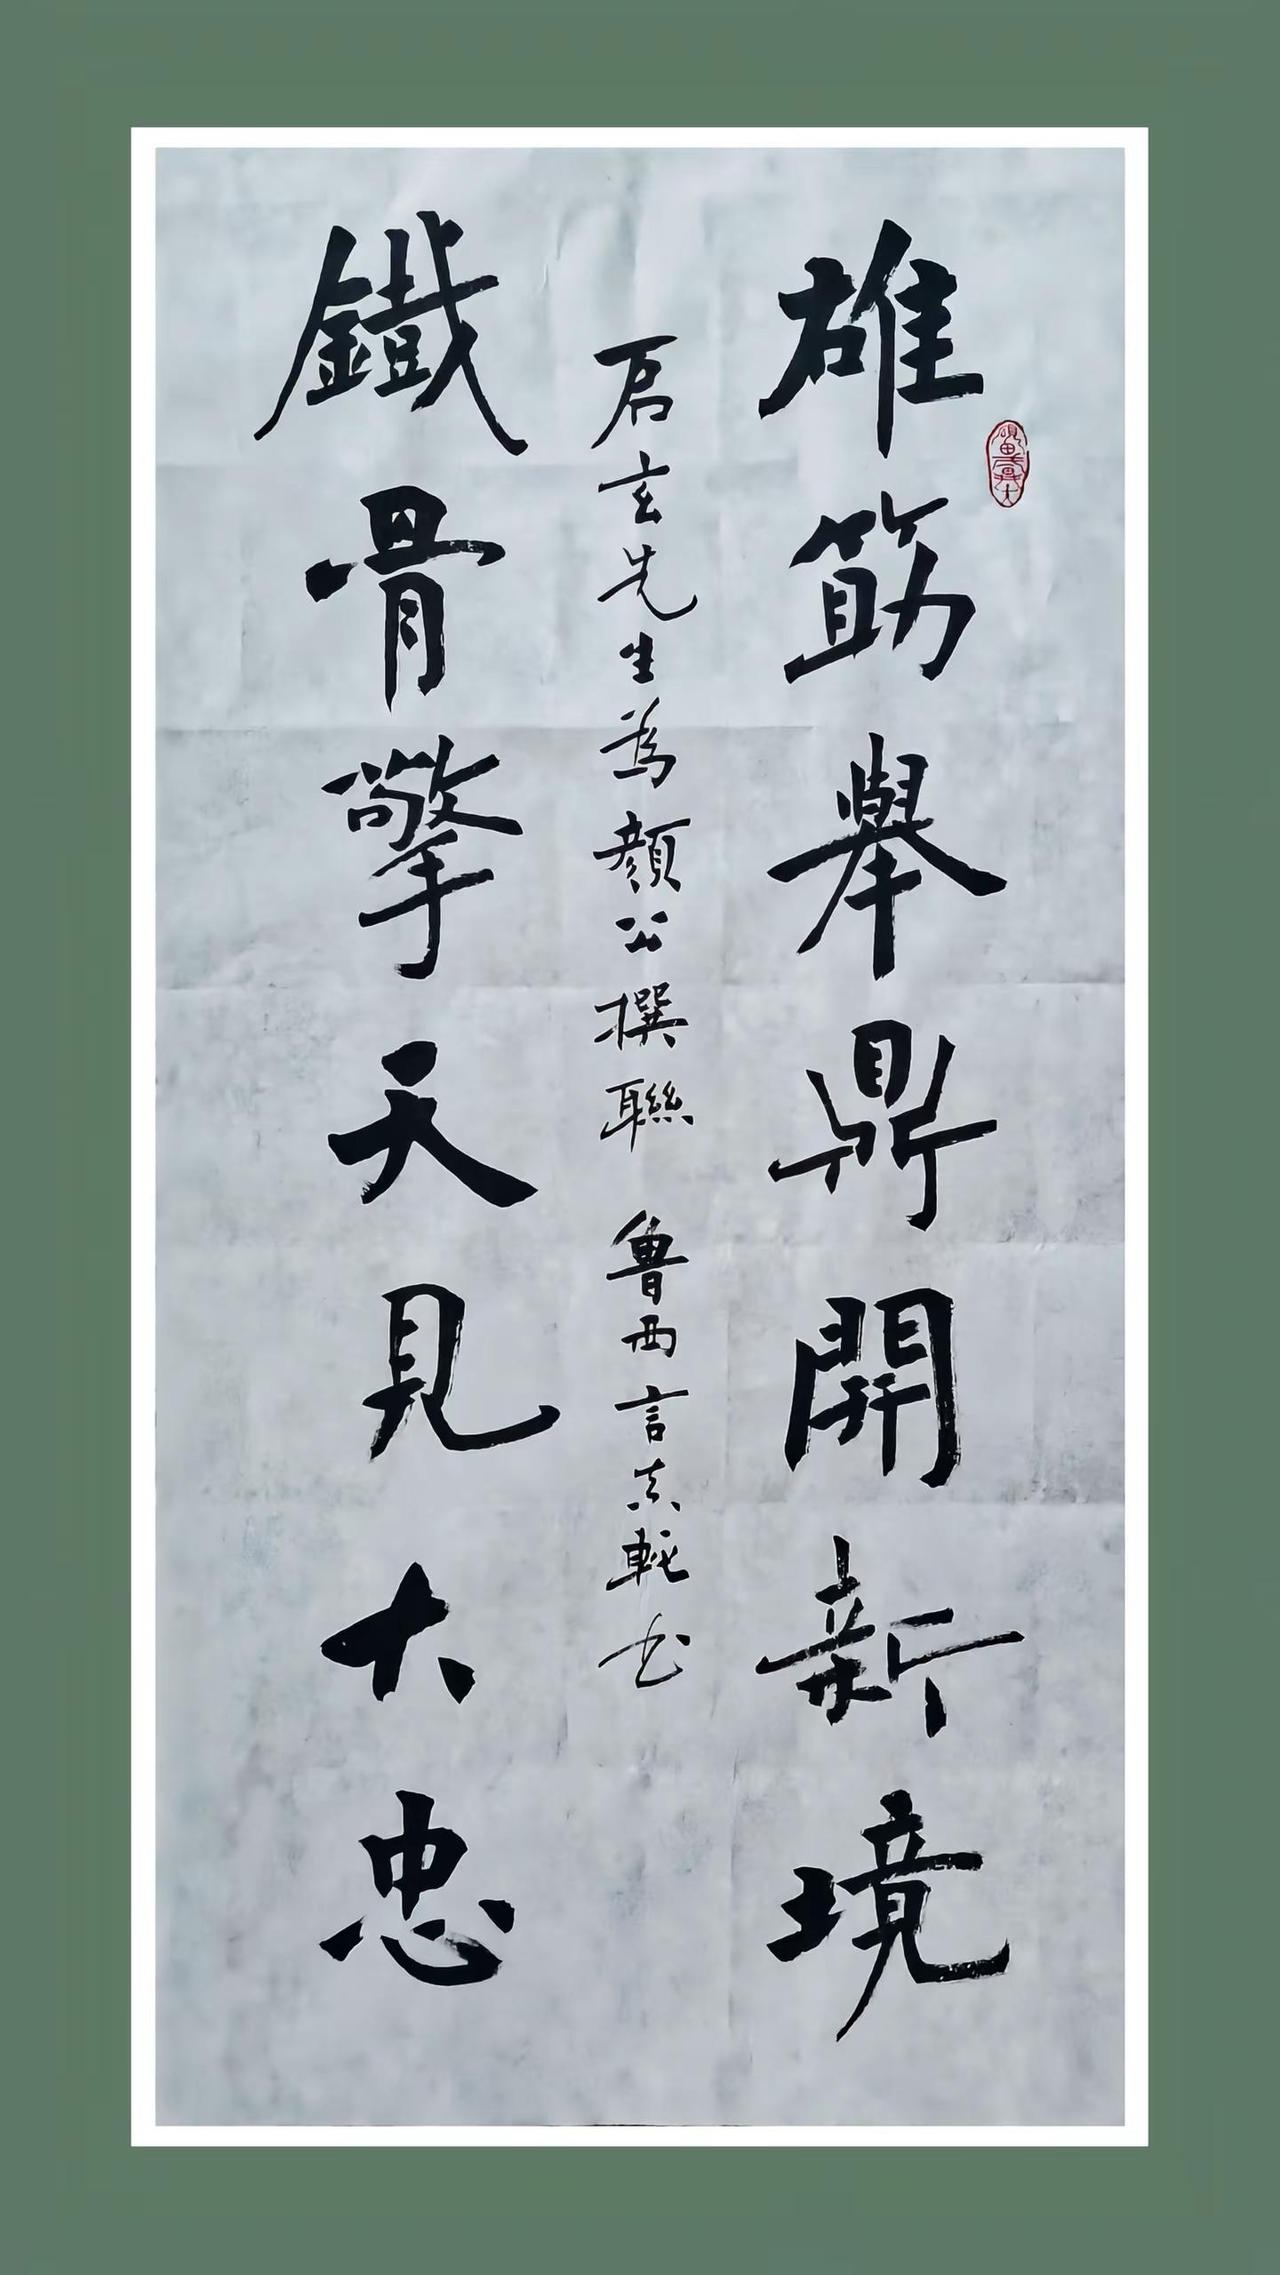 雄筋舉鼎開新境
石玄先生為顏公撰聯 魯西言志 书
鐵骨擎天見大忠